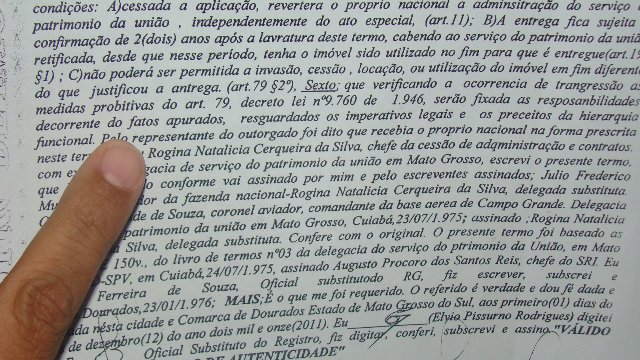 condições: A)cessada a aplicação, revertera o proprio nacional a adminsitração do serviço
patrimonio da união , independentemente do ato especial, (art.11); B)A entrega fica sujeita
confirmação de 2(dois) anos após a lavratura deste termo, cabendo ao serviço do patrimonio da uniã
retificada, desde que nesse período, tenha o imóvel sido utilizado no fim para que é entregue(art.19
§1) ; C)não poderá ser permitida a invasão, cessão , locação, ou utilização do imóvel em fim diferen
do que justificou a antrega. (art.79 §2º), Sexto; que verificando a ocorrencia de trangressão as
medidas probitivas do art. 79, decreto lei nº9.760 de 1.946, serão fixada as resposanbilidades
decorrente do fatos apurados, resguardados os imperativos legais e os preceitos da hierarquia
funcional. Pelo representante do outorgado foi dito que recebia o proprio nacional na forma prescrita
neste termo Rogina Natalicia Cerqueira da Silva, chefe da cessão de adqmnistração e contratos,
com ex gacia de serviço do patrimonio da união em Mato Grosso, escrevi o presente termo,
que conforme vai assinado por mim e pelo escreventes assinados; Julio Frederico
Mu dor da fazenda nacional-Rogina Natalicia Cerqueira da Silva, delegada substituta.
de de Souza, coronel aviador, comandante da base aerea de Campo Grande. Delegacia
patrimonio da união em Mato Grosso, Cuiabá,23/07/1975; assinado ;Rogina Natalicia
Silva, delegada substituta. Confere com o original. O presente termo foi baseado as
150v., do livro de termos nº03 da delegacia do serviço do ptrimonio da União, em Mato
-SPV, em Cuiabá,24/07/1975, assinado Augusto Procoro dos Santos Reis, chefe do SRI. Eu
Ferreira de Souza, Oficial substitutodo RG, fiz escrever, subscrei e
Dourados,23/01/1976; MAIS;É o que me foi requerido. O referido é verdade e dou fé dada e
nesta cidade e Comarca de Dourados Estado de Mato Grosso do Sul, aos primeiro(01) dias do
de dezembro(12) do ano dois mil e onze(2011). Eu (Elvio Pissurno Rodrigues) digitei
Oficial Substituto do Registro, fiz digitar, conferi, subscrevi e assino."VÁLIDO
DE AUTENTICIDADE"